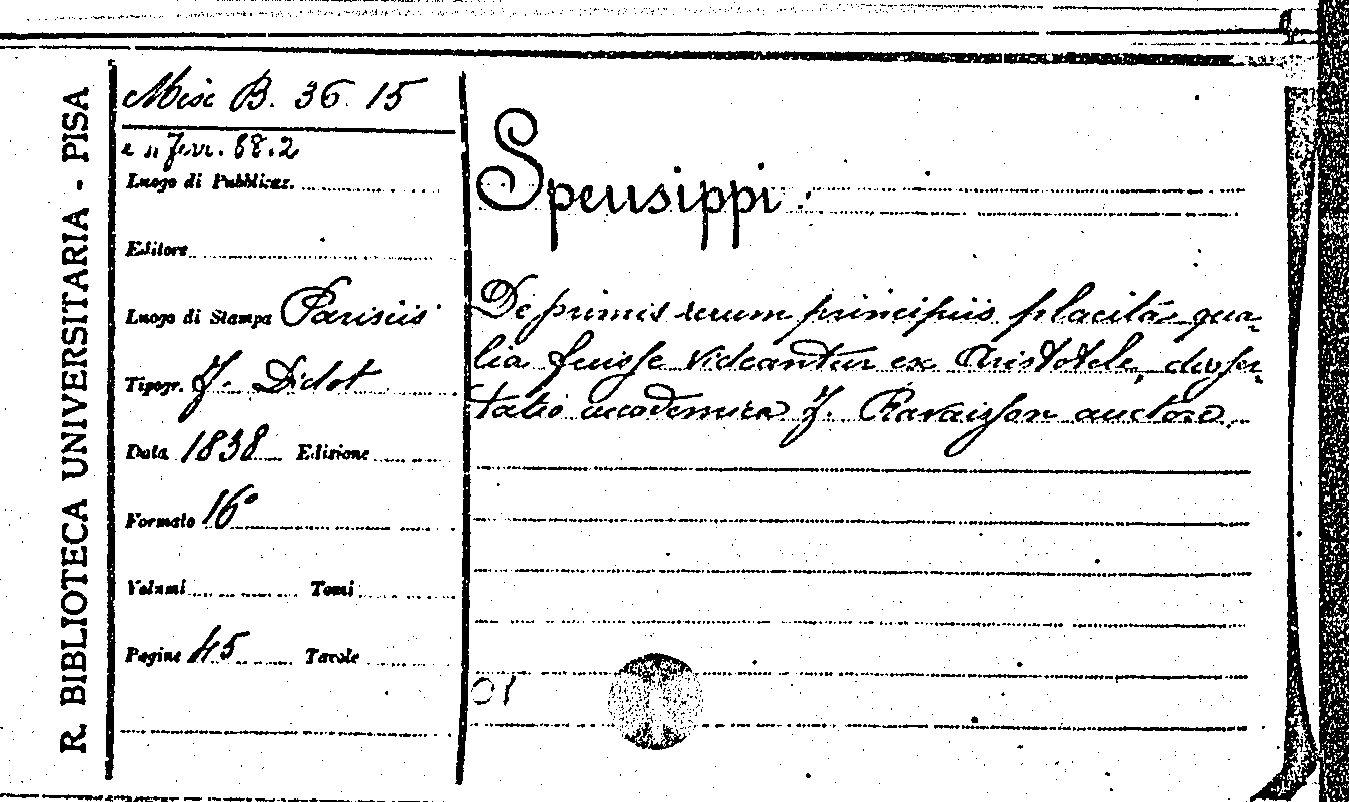 R. BIBLIOTECA UNIVERSITARIA - PISA
Misc B. 36. 15
e n Ferr. 88.2
Luogo di Pubblicaz.
Editore
Luogo di Stampa Parisiis
Tipogr. J. Didot
Data 1838 Edizione
Formato 16°
Volumi Tomi
Pagine 45 Tavole
Speusippi
De primis rerum principiis placita qua-
lia fuisse videantur ex Aristotele, disser-
tatio academica J. Ravaisson auctore.
01